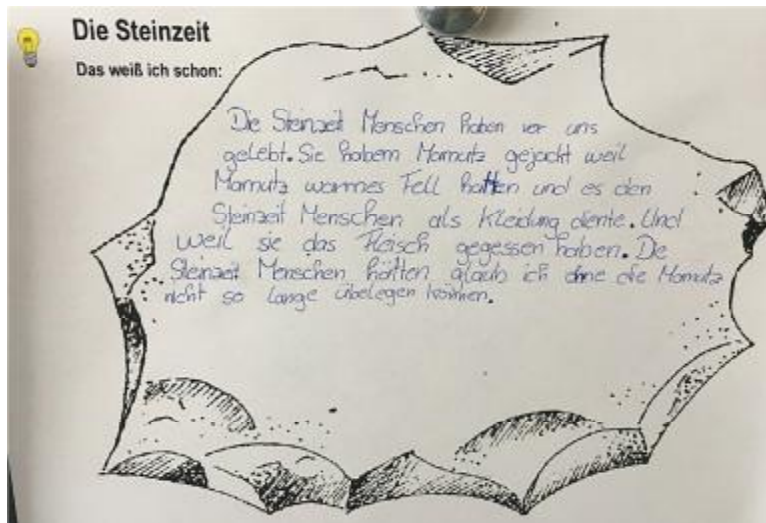 Die Steinzeit
Das weiß ich schon:
Die Steinzeit Menschen haben vor uns
gelebt. Sie habem Mamutz gejackt weil
Mamutz warmes Fell hatten und es den
Steinzeit Menschen als Kleidung diente. Und
weil sie das Fleisch gegessen haben. Die
Steinzeit Menschen hätten glaub ich ohne die Mamutz
nicht so lange übelegen können.